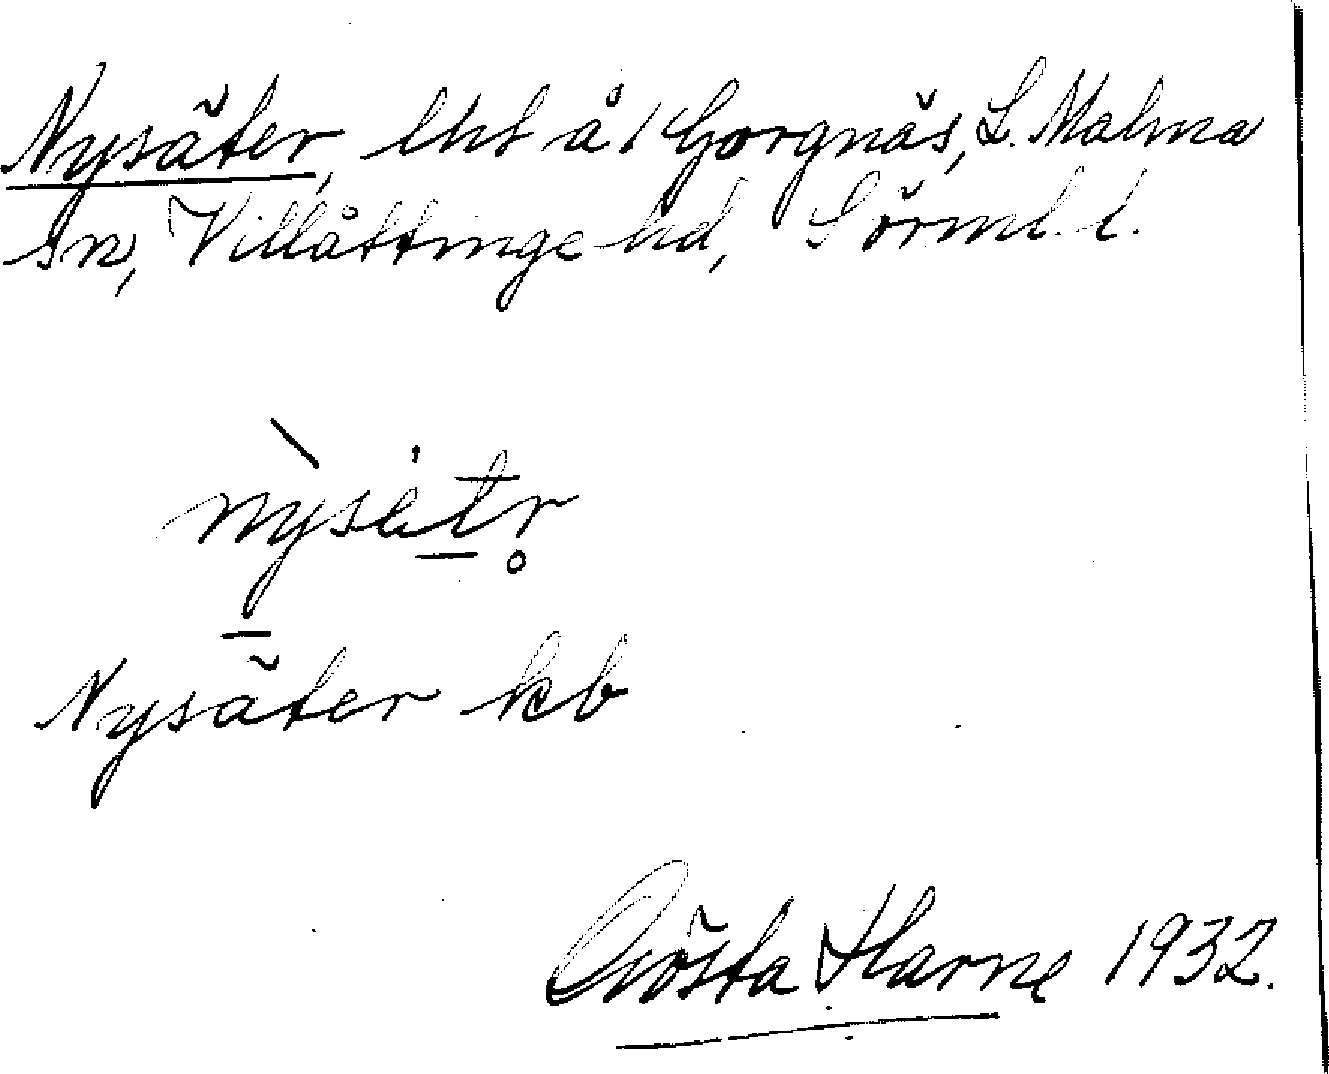 Nysäter, lht å 1 Gorgnäs, L. Malma
sn, Villåttinge hd, Sörml. l.
nysetr
Nysäter kb
Gösta Harne 1932.